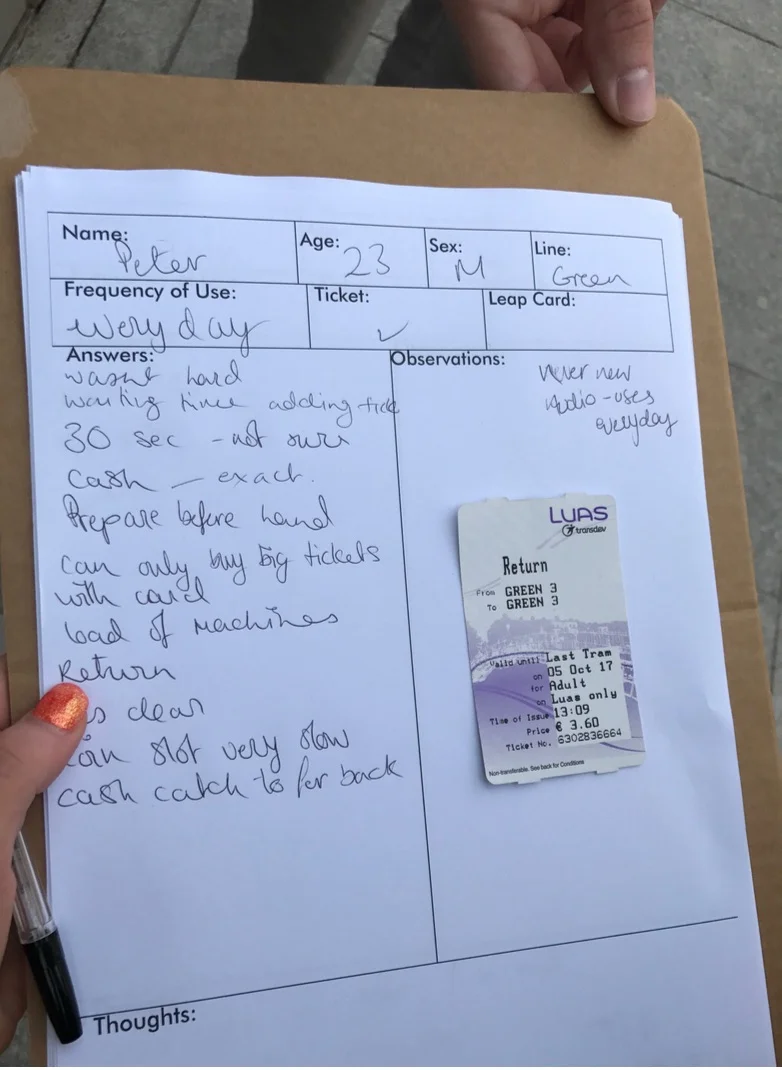 Name: Peter
Age: 23
Sex: M
Line: Green
Frequency of Use: every day
Ticket: ✓
Leap Card:
Answers:
wasnt hard
waiting time adding tick
30 sec - not sure
Cash – exact.
Prepare before hand
can only buy big tickets
with card
load of Machines
Return
is clear
Coin slot very slow
cash catch to far back
Observations:
never new
Audio - uses
everyday
LUAS
transdev
Return
From GREEN 3
To GREEN 3
Valid until Last Tram
on 05 Oct 17
for Adult
on Luas only
Time of Issue 13:09
Price € 3.60
Ticket No. 6302836664
Non-transferable. See back for Conditions
Thoughts: